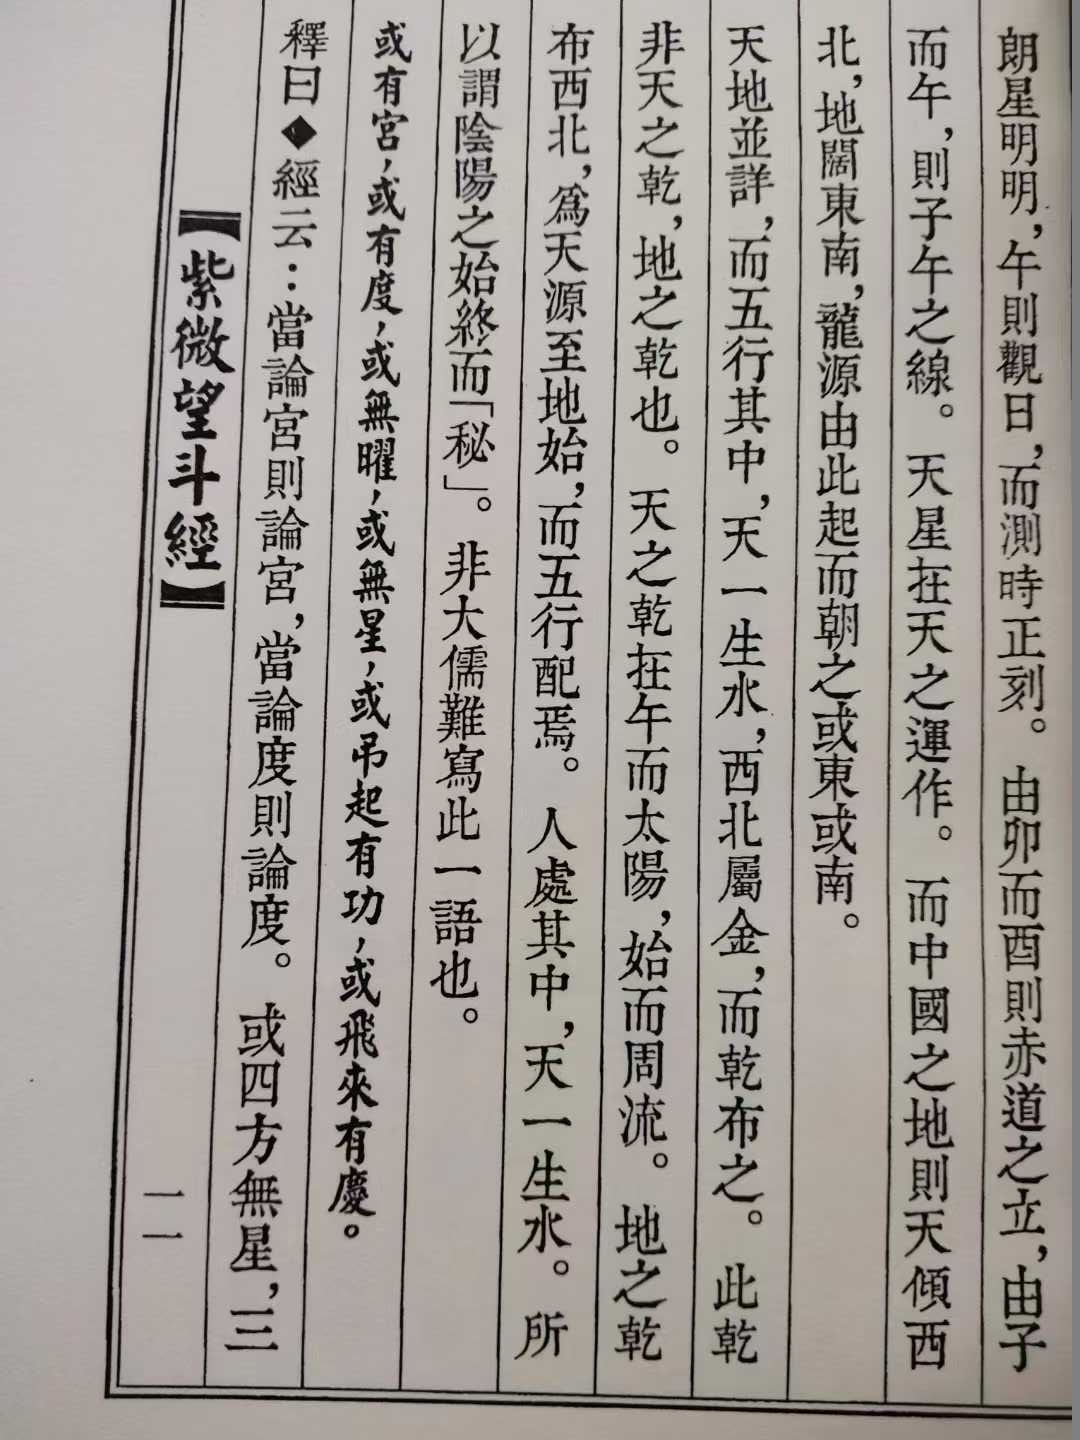 朗星明明，午則觀日，而測時正刻。由卯而酉則赤道之立，由子
而午，則子午之線。天星在天之運作。而中國之地則天傾西
北，地闊東南，龍源由此起而朝之或東或南。
天地並詳，而五行其中，天一生水，西北屬金，而乾布之。此乾
非天之乾，地之乾也。天之乾在午而太陽，始而周流。地之乾
布西北，為天源至地始，而五行配焉。人處其中，天一生水。所
以謂陰陽之始終而「秘」。非大儒難寫此一語也。
或有宮，或有度，或無曜，或無星，或吊起有功，或飛來有慶。
釋曰◆經云：當論宮則論宮，當論度則論度。或四方無星，三
【紫微望斗經】
一一